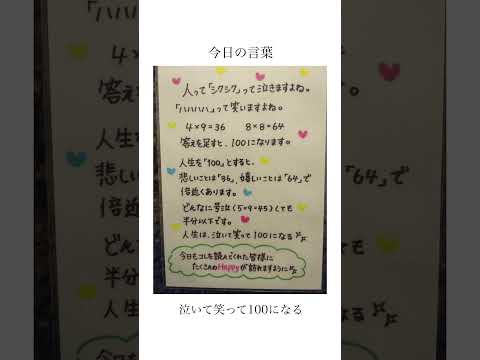 今日の言葉
人って「シクシク」って泣きますよね。
「ハハハハ」って笑いますよね。
4×9=36 8×8=64
答えを足すと、100になります。
人生を「100」とすると、
悲しいことは「36」、嬉しいことは「64」で
倍近くあります。
どんなに号泣(5×9=45)しても
半分以下です。
人生は、泣いて笑って100になる
今日もコレを読んでくれた皆様に
たくさんのHappyが訪れますように
泣いて笑って100になる